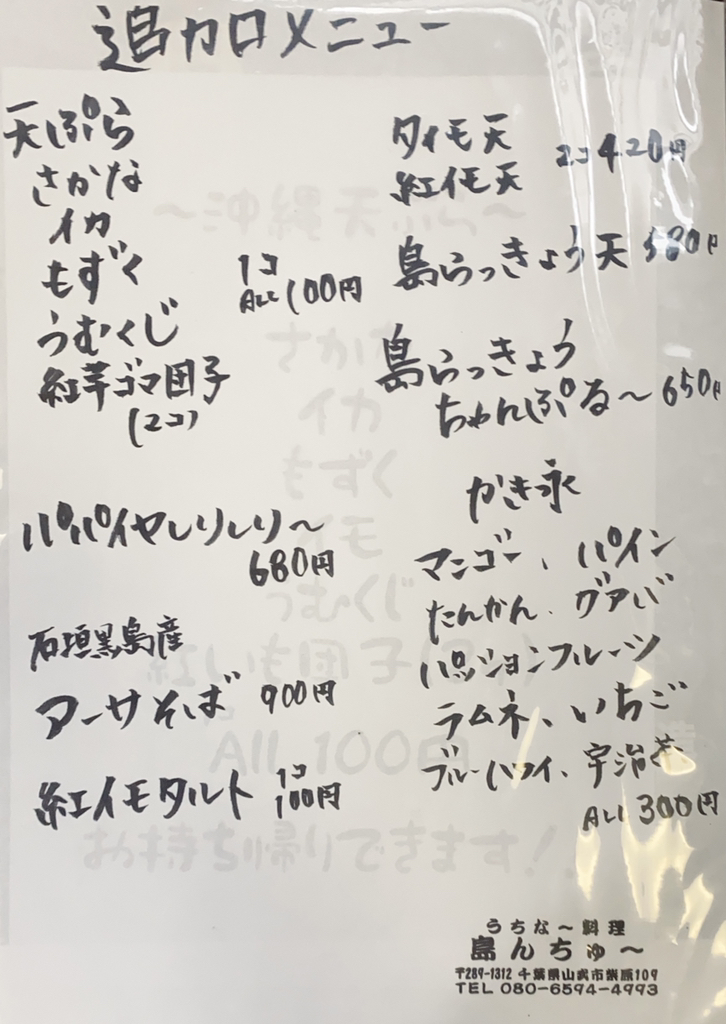 追加メニュー
天ぷら
さかな
イカ
もずく
うむくじ
紅芋ゴマ団子
(2コ)
1コ
ALL 100円
パパイヤしりしり〜
680円
石垣黒島産
アーサそば 900円
紅イモタルト 1コ
100円
タイモ天
紅イモ天 2コ 420円
島らっきょう天 580円
島らっきょう
ちゃんぷる〜 650円
かき氷
マンゴー、パイン
たんかん、グァバ
パッションフルーツ
ラムネ、いちご
ブルーハワイ、宇治茶
ALL 300円
〜沖縄天ぷら〜
さかな
イカ
もずく
イモ
うむくじ
紅いも団子(2コ)
All 100円
お持ち帰りできます!
うちな〜料理
島んちゅ〜
〒289-1312 千葉県山武市柴原109
TEL 080-6594-4993